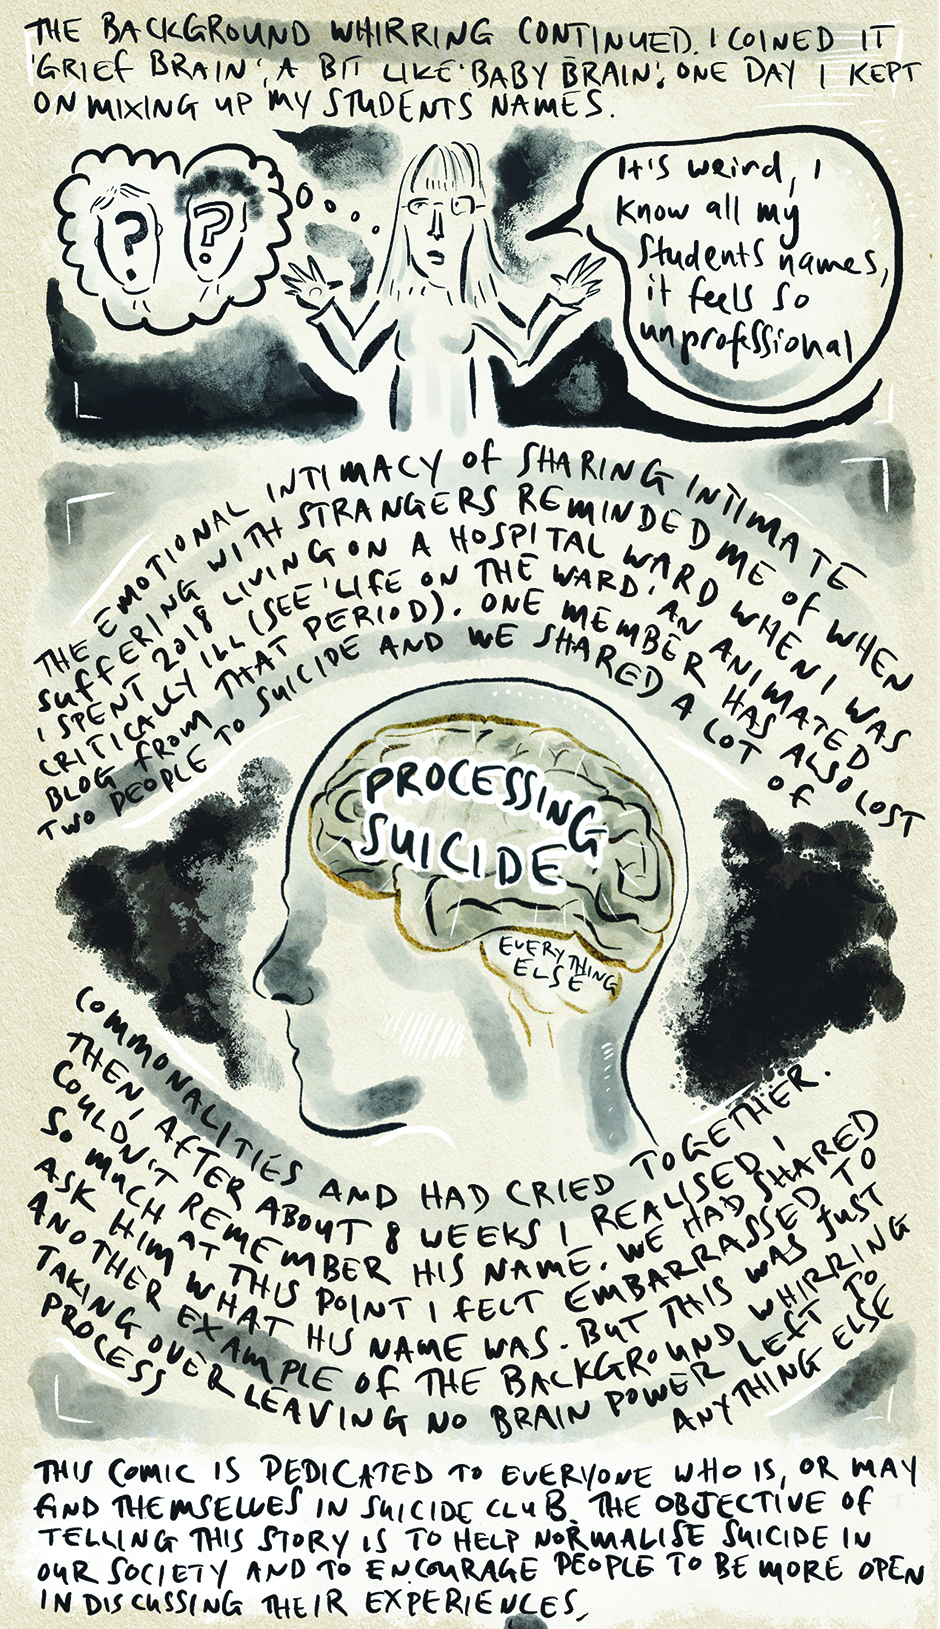 THE BACKGROUND WHIRRING CONTINUED. I COINED IT
'GRIEF BRAIN', A BIT LIKE 'BABY BRAIN'. ONE DAY I KEPT
ON MIXING UP MY STUDENTS NAMES.
?
?
It's weird, I
know all my
students names,
it feels so
unprofessional
THE EMOTIONAL INTIMACY OF SHARING INTIMATE
SUFFERING WITH STRANGERS REMINDED ME OF WHEN
I SPENT 2018 LIVING ON A HOSPITAL WARD WHEN I WAS
CRITICALLY ILL (SEE 'LIFE ON THE WARD', AN ANIMATED
BLOG FROM THAT PERIOD). ONE MEMBER HAS ALSO LOST
TWO PEOPLE TO SUICIDE AND WE SHARED A LOT OF
PROCESSING
SUICIDE
EVERYTHING
ELSE
COMMONALITIES AND HAD CRIED TOGETHER.
THEN, AFTER ABOUT 8 WEEKS I REALISED I
COULDN'T REMEMBER HIS NAME. WE HAD SHARED
SO MUCH AT THIS POINT I FELT EMBARRASSED TO
ASK HIM WHAT HIS NAME WAS. BUT THIS WAS JUST
ANOTHER EXAMPLE OF THE BACKGROUND WHIRRING
TAKING OVER LEAVING NO BRAIN POWER LEFT TO
PROCESS ANYTHING ELSE
THIS COMIC IS DEDICATED TO EVERYONE WHO IS, OR MAY
FIND THEMSELVES IN SUICIDE CLUB. THE OBJECTIVE OF
TELLING THIS STORY IS TO HELP NORMALISE SUICIDE IN
OUR SOCIETY AND TO ENCOURAGE PEOPLE TO BE MORE OPEN
IN DISCUSSING THEIR EXPERIENCES,